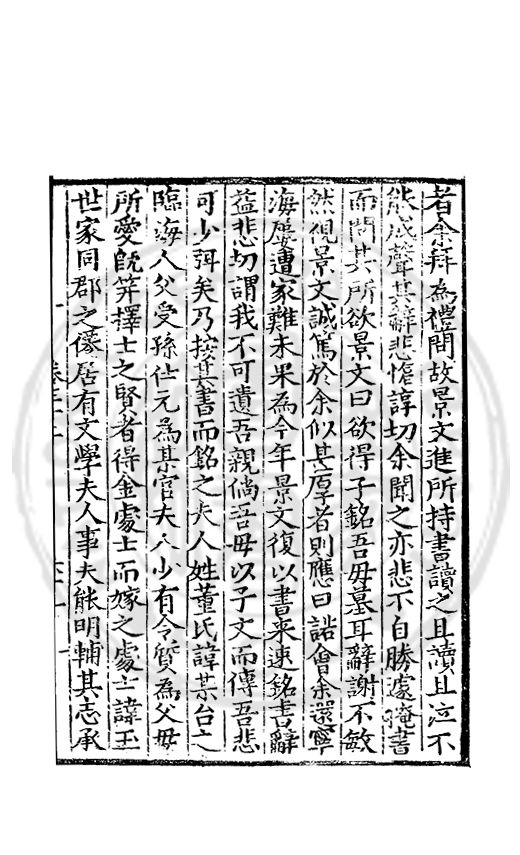 者余拜為禮間故景文進所持書讀之且讀且泣不
能成聲其辭悲愴諄切余聞之亦悲不自勝遽掩書
而問其所欲景文曰欲得子銘吾母墓耳辭謝不敏
然俔景文誠篤於余似甚厚者則應曰諾會余還寧
海屢遭家難未果為今年景文復以書来速銘書辭
益悲切謂我不可遺吾親倘吾母以子文而傳吾悲
可少弭矣乃按其書而銘之夫人姓董氏諱某台之
臨海人父受孫仕元為某官夫人少有令質為父母
所愛既笄擇士之賢者得金處士而嫁之處士諱玉
世家同郡之僊居有文學夫人事夫能明輔其志承